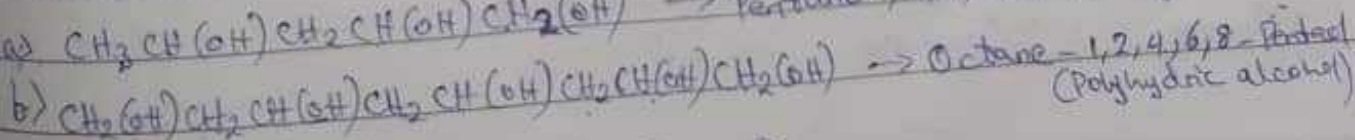 a) CH3 CH(OH) CH2 CH(OH) CH2(OH) →
b) CH2(OH) CH2 CH(OH) CH2 CH(OH) CH2 CH(OH) CH2(OH) → Octane - 1,2,4,6,8 -
(Polyhydric alcohol)